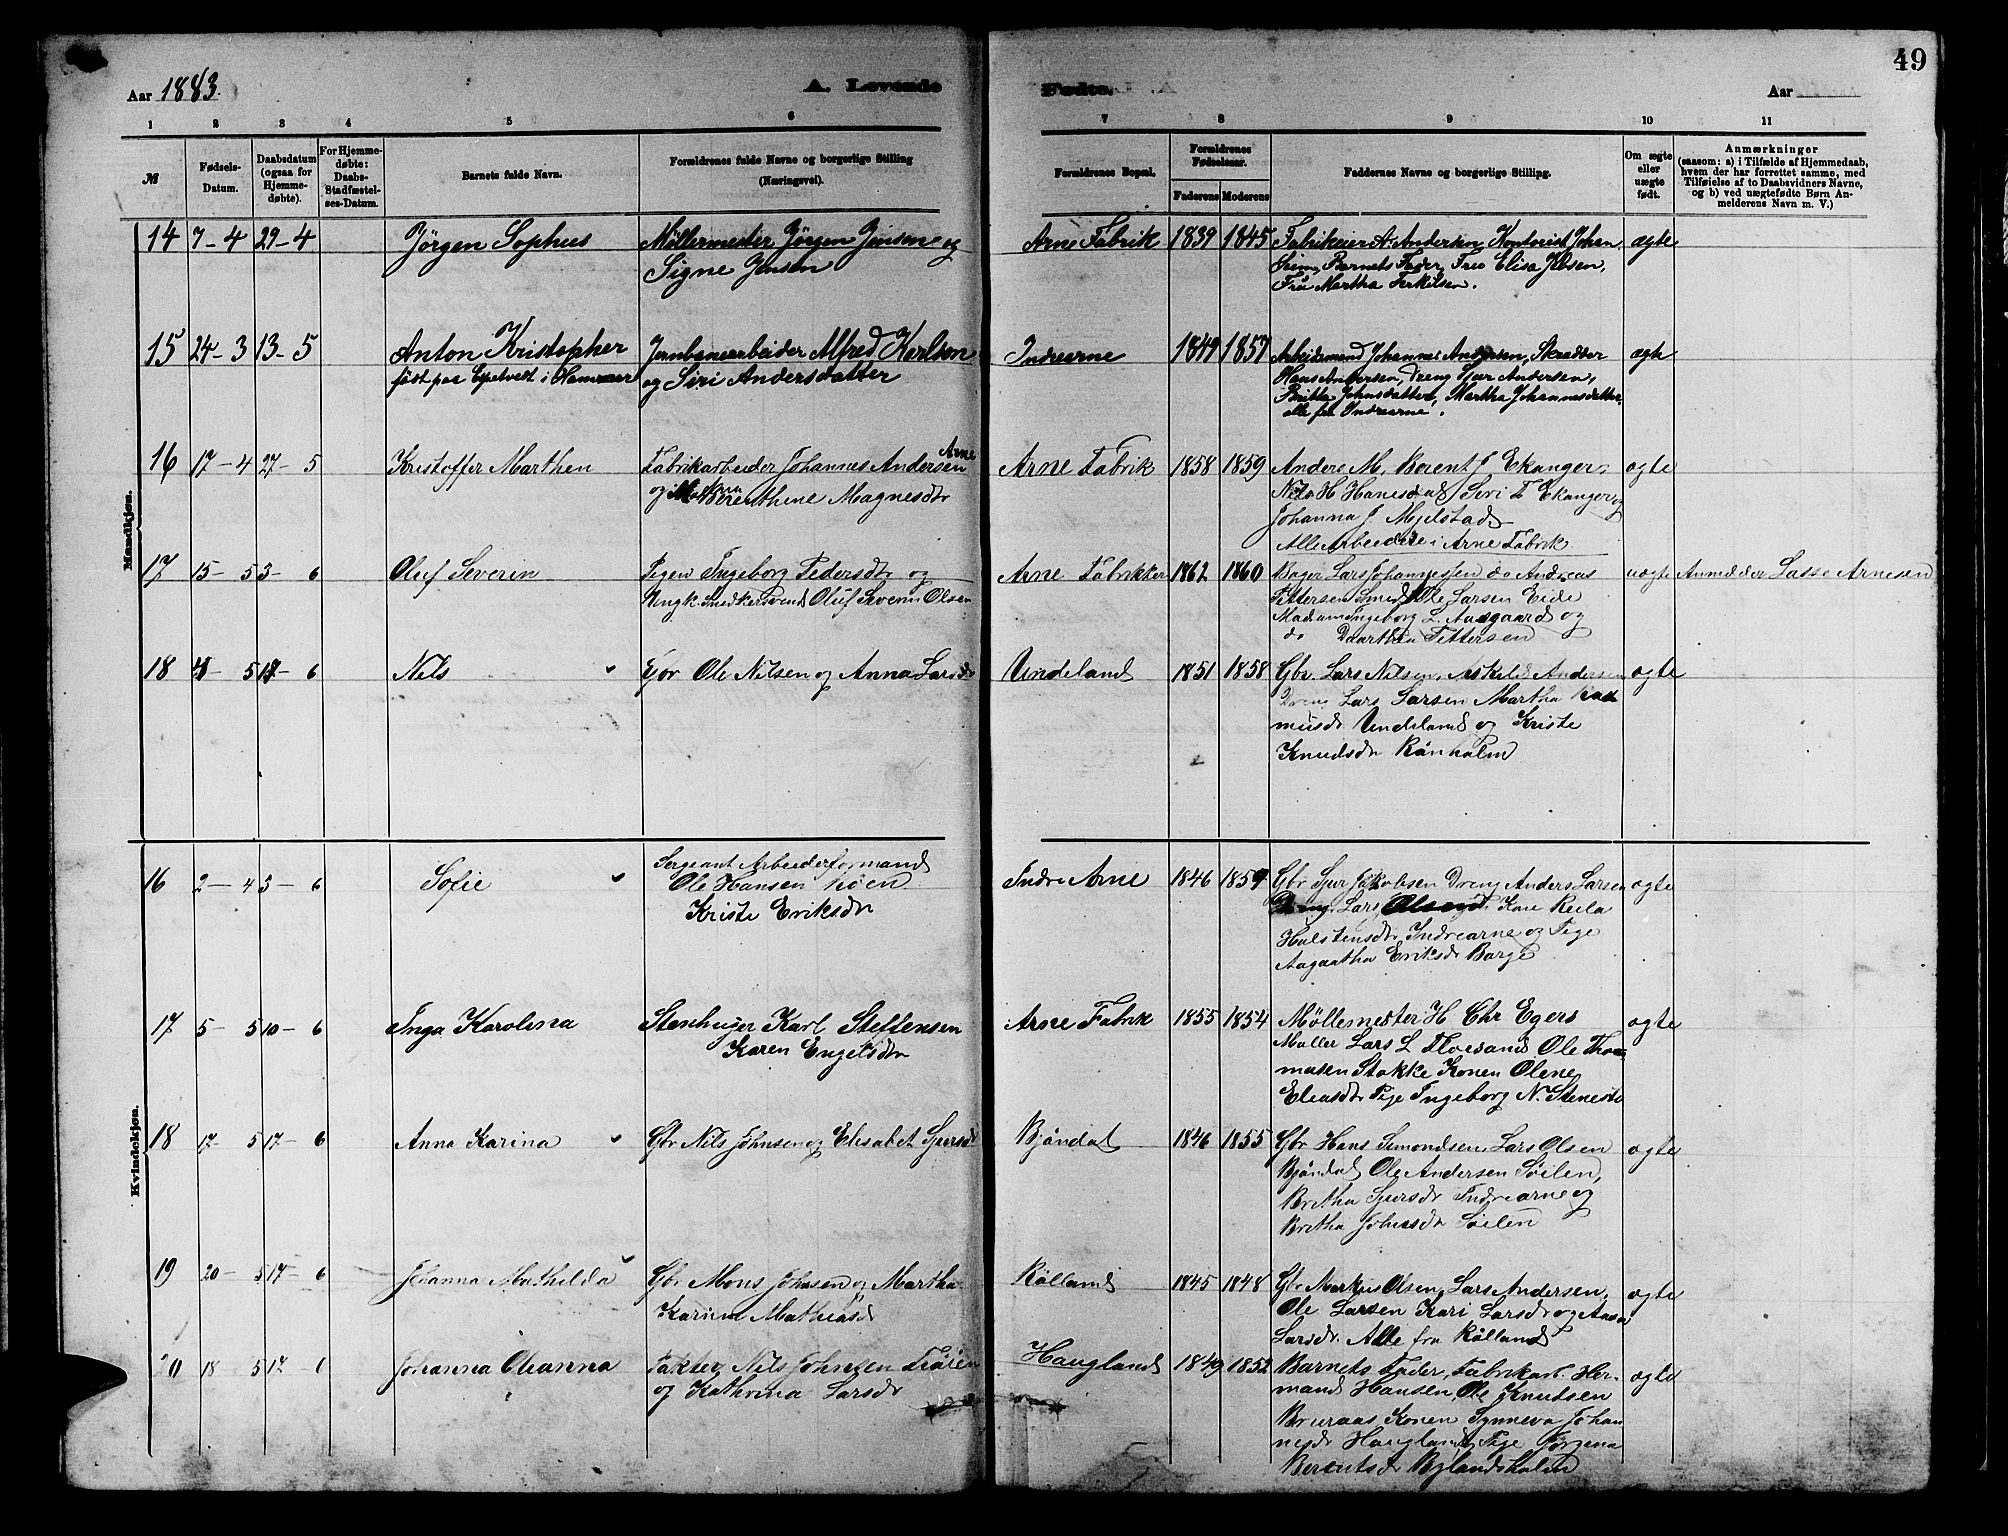 49
Aar 1883.
A. Levende
Fødte.
Aar
1 2 3 4 5 6 7 8 9 10 11
№
Fødsels-
Datum.
Daabsdatum
(ogsaa for
Hjemme-
døbte).
For Hjemme-
døbte:
Daabs-
Stadfæstel-
ses-Datum.
Barnets fulde Navn.
Forældrenes fulde Navne og borgerlige Stilling
(Næringsvei).
Forældrenes Bopæl.
Forældrenes
Fødselsaar.
Faderens Moderens
Faddernes Navne og borgerlige Stilling.
Om ægte
eller
uægte
født.
Anmærkninger
(saasom: a) i Tilfælde af Hjemmedaab,
hvem der har forrettet samme, med
Tilføielse af to Daabsvidners Navne,
og b) ved uægtefødte Børn An-
melderens Navn m. V.)
Mandkjøn.
14 7-4 29-4 Jörgen Sophus Möllermester Jörgen Jensen og Arne Fabrik 1839 1845 Fabrikeier A. Andersen, Kontorist Johan ægte
Signe Jensen Seim, Barnets Fader, Frø Elisa Jebsen,
Frü Martha Terkilsen.
15 24-3 13-5 Anton Kristopher Jernbanearbeider Alfred Karlson Indrearne 1849 1857 Arbeidsmand Johannes Andersen, Skrædder ægte
født paa Epelvedt i Hammer og Siri Andersdatter Hans Andersen, Dreng Sjur Andersen,
Britha Johnsdatter, Martha Johannesdatter
alle fra Indrearne.
16 17-4 27-5 Kristoffer Marthen Fabrikarbeider Johannes Andersen Arne Arne Fabrik 1858 1859 Anders M, Berent J Ekanger, ægte
og Berenthene Magnesdtr Nils H Hanesdal Siri T Ekanger og
Johanna J Mjelstad
Alle Arbeidere i Arne Fabrik
17 15-5 3-6 Oluf Severin Pigen Ingeborg Pedersdtr og Arne Fabrikker 1862 1860 Bager Lars Johannessen do Andreas uægte Anmelder Lasse Arnesen
Ungk Snedkersvend Oluf Severin Olsen Pettersen Smed Ole Larsen Eide
Madam Ingeborg L. Aasgaard og
do Daarthea Pettersen
18 4-5 17-6 Nils Gbr Ole Nilsen og Anna Larsdtr Undeland 1851 1858 Gbr. Lars Nilsen, Askild Andersen ægte
Dreng Lars Larsen Martha Ras
musdr Undeland og Kriste
Knudsdr Rånholm
Kvindekjøn.
16 2-4 3-6 Sofie Sergeant Arbeiderformand Indre Arne 1846 1859 Gbr Sjur Jakobsen Dreng Anders Larsen ægte
Ole Hansen Lars Olsen, Kone
Kriste Eriksdr Halstensdr Indrearne og Pige
Aagaatha Eriksdr Borge
17 5-5 10-6 Inga Karolina Stenhuger Karl Steffensen Arne Fabrik 1855 1854 Möllemester H Chr Egers ægte
Karen Engelsdtr Møller Lars L Ole Tho
masen Stokke Konen Olene
Eleasdtr Pige Ingeborg N.
18 17-5 17-6 Anna Karina Gbr Nils Johnsen og Elisabet Sjursdtr Bjöndal 1846 1855 Gbr Hans Simondsen, Lars Olsen ægte
Bjöndal Ole Andersen Söilen,
Britha Sjursdr Indrearne og
Britha Johnsdr Söilen
19 20-5 17-6 Johanna Mathilda Gbr Mons Johnsen og Martha Rölland 1845 1848 Gbr Markus Olsen, Lars Andersen, ægte
Karine Mathiasdr Ole Larsen Kari Larsdr og Anna
Larsdr. Alle fra Rölland
20 18-5 17-6 Johanna Oleanna Nils Johnsen Haugland 1849 1852 Barnets Fader, Fabrikarb. Her- ægte
og Kathrina Larsdr mand Hansen, Ole Knudsen
Bruraas Konen Synneva Johan
nesdr Haugland, Pige Jörgena
Berentsdr